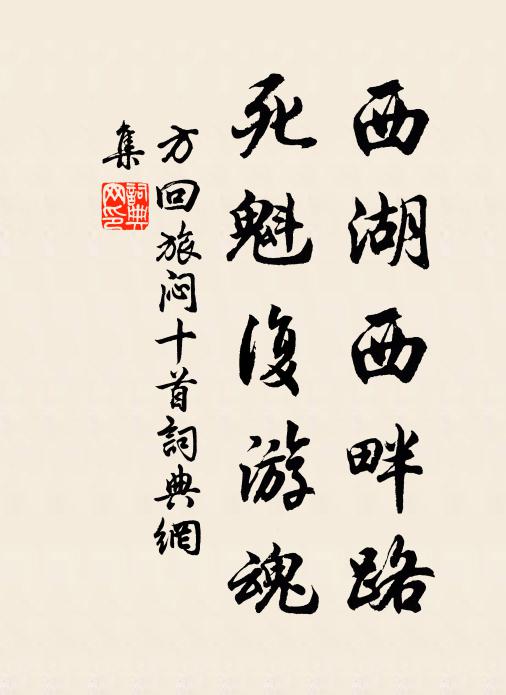 西湖西畔路
死魁復游魂
方回旅闷十首詞典網
集
詞典網印